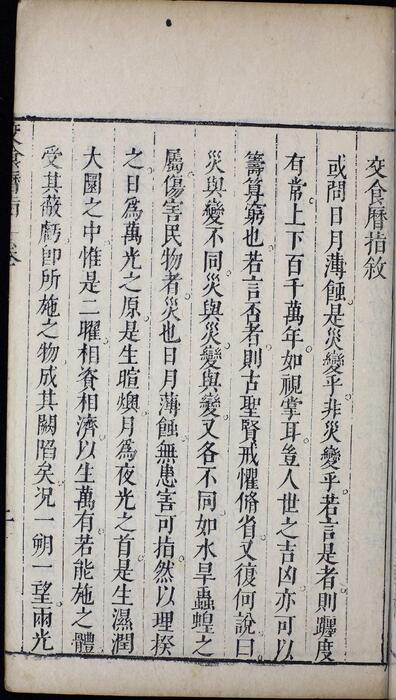 交食曆指敘
或問日月薄蝕是災變乎非災變乎若言是者則躔度
有常上下百千萬年如視掌耳豈人世之吉凶亦可以
籌算窮也若言否者則古聖賢戒懼脩省又復何說曰
災與變不同災與災變與變又各不同如水旱蟲蝗之
屬傷害民物者災也日月薄蝕無患害可指然以理揆
之日為萬光之原是生暄燠月為夜光之首是生濕潤
大圜之中惟是二曜相資相濟以生萬有若能施之體
受其蔽虧卽所施之物成其闕陷矣况一朔一望兩光
交食曆指 卷
一